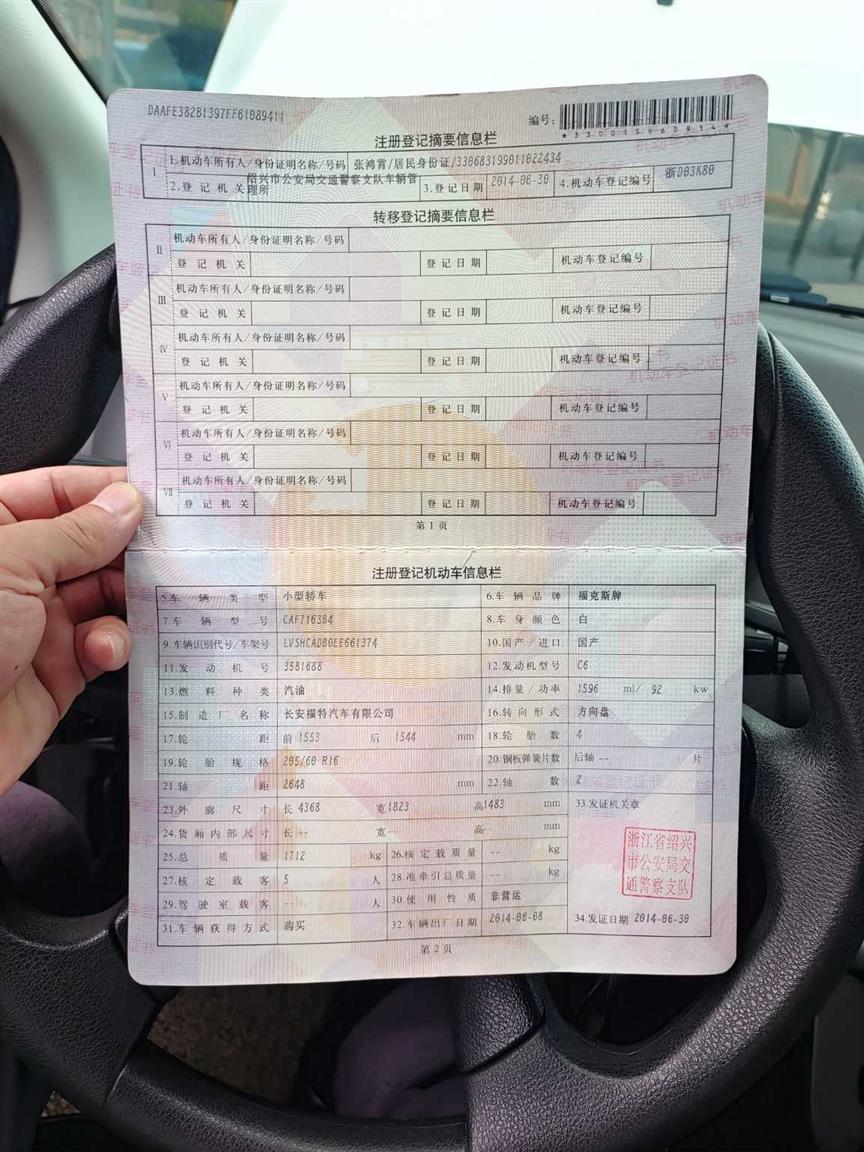 DAAFE382B1397FF61989411
编号:
*330015660914*
注册登记摘要信息栏
I 1.机动车所有人/身份证明名称/号码 张鸿霄/居民身份证/330683199011022434
2.登记机关 绍兴市公安局交通警察支队车辆管理所 3.登记日期 2014-06-30 4.机动车登记编号 浙D03K80
转移登记摘要信息栏
II 机动车所有人/身份证明名称/号码
登记机关 登记日期 机动车登记编号
III 机动车所有人/身份证明名称/号码
登记机关 登记日期 机动车登记编号
IV 机动车所有人/身份证明名称/号码
登记机关 登记日期 机动车登记编号
V 机动车所有人/身份证明名称/号码
登记机关 登记日期 机动车登记编号
VI 机动车所有人/身份证明名称/号码
登记机关 登记日期 机动车登记编号
VII 机动车所有人/身份证明名称/号码
登记机关 登记日期 机动车登记编号
第1页
注册登记机动车信息栏
5.车辆类型 小型轿车 6.车辆品牌 福克斯牌
7.车辆型号 CAF7163B4 8.车身颜色 白
9.车辆识别代号/车架号 LVSHCADB0EE661374 10.国产/进口 国产
11.发动机号 3581688 12.发动机型号 C6
13.燃料种类 汽油 14.排量/功率 1596 ml/ 92 kw
15.制造厂名称 长安福特汽车有限公司 16.转向形式 方向盘
17.轮距 前 1553 后 1544 mm 18.轮胎数 4
19.轮胎规格 205/60 R16 20.钢板弹簧片数 后轴 -- 片
21.轴距 2648 mm 22.轴数 2
23.外廓尺寸 长 4368 宽 1823 高 1483 mm 33.发证机关章
24.货厢内部尺寸 长 -- 宽 -- 高 -- mm
25.总质量 1712 kg 26.核定载质量 -- kg
27.核定载客 5 人 28.准牵引总质量 -- kg
29.驾驶室载客 -- 人 30.使用性质 非营运
31.车辆获得方式 购买 32.车辆出厂日期 2014-06-08 34.发证日期 2014-06-30
浙江省绍兴
市公安局交
通警察支队
第2页